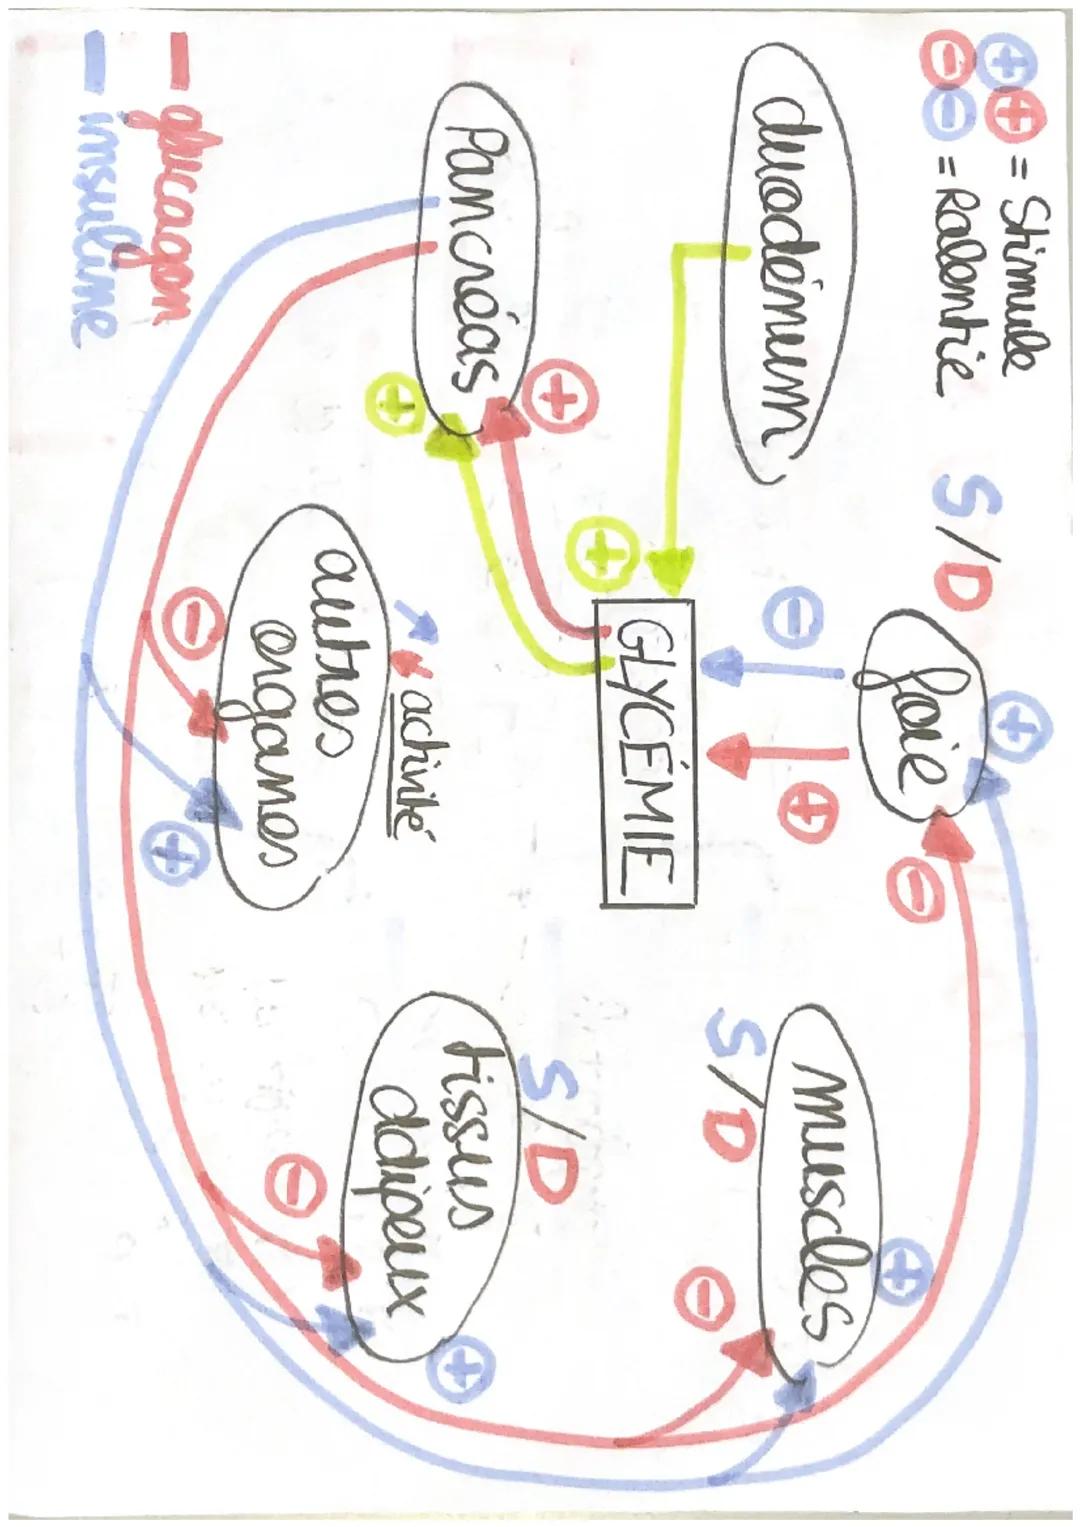 ⊕ ⊕ = Stimule
⊖ ⊖ = Ralentie
duodénum
Pancréas
S/D
foie
⊕
⊖
⊖
⊕
⊕
⊕
⊕
GLYCÉMIE
↗ ↘ activité
autres
organes
⊖
⊕
muscles
S/D
⊕
⊖
S/D
tissus
adipeux
⊖
⊕
— glucagon
— insuline